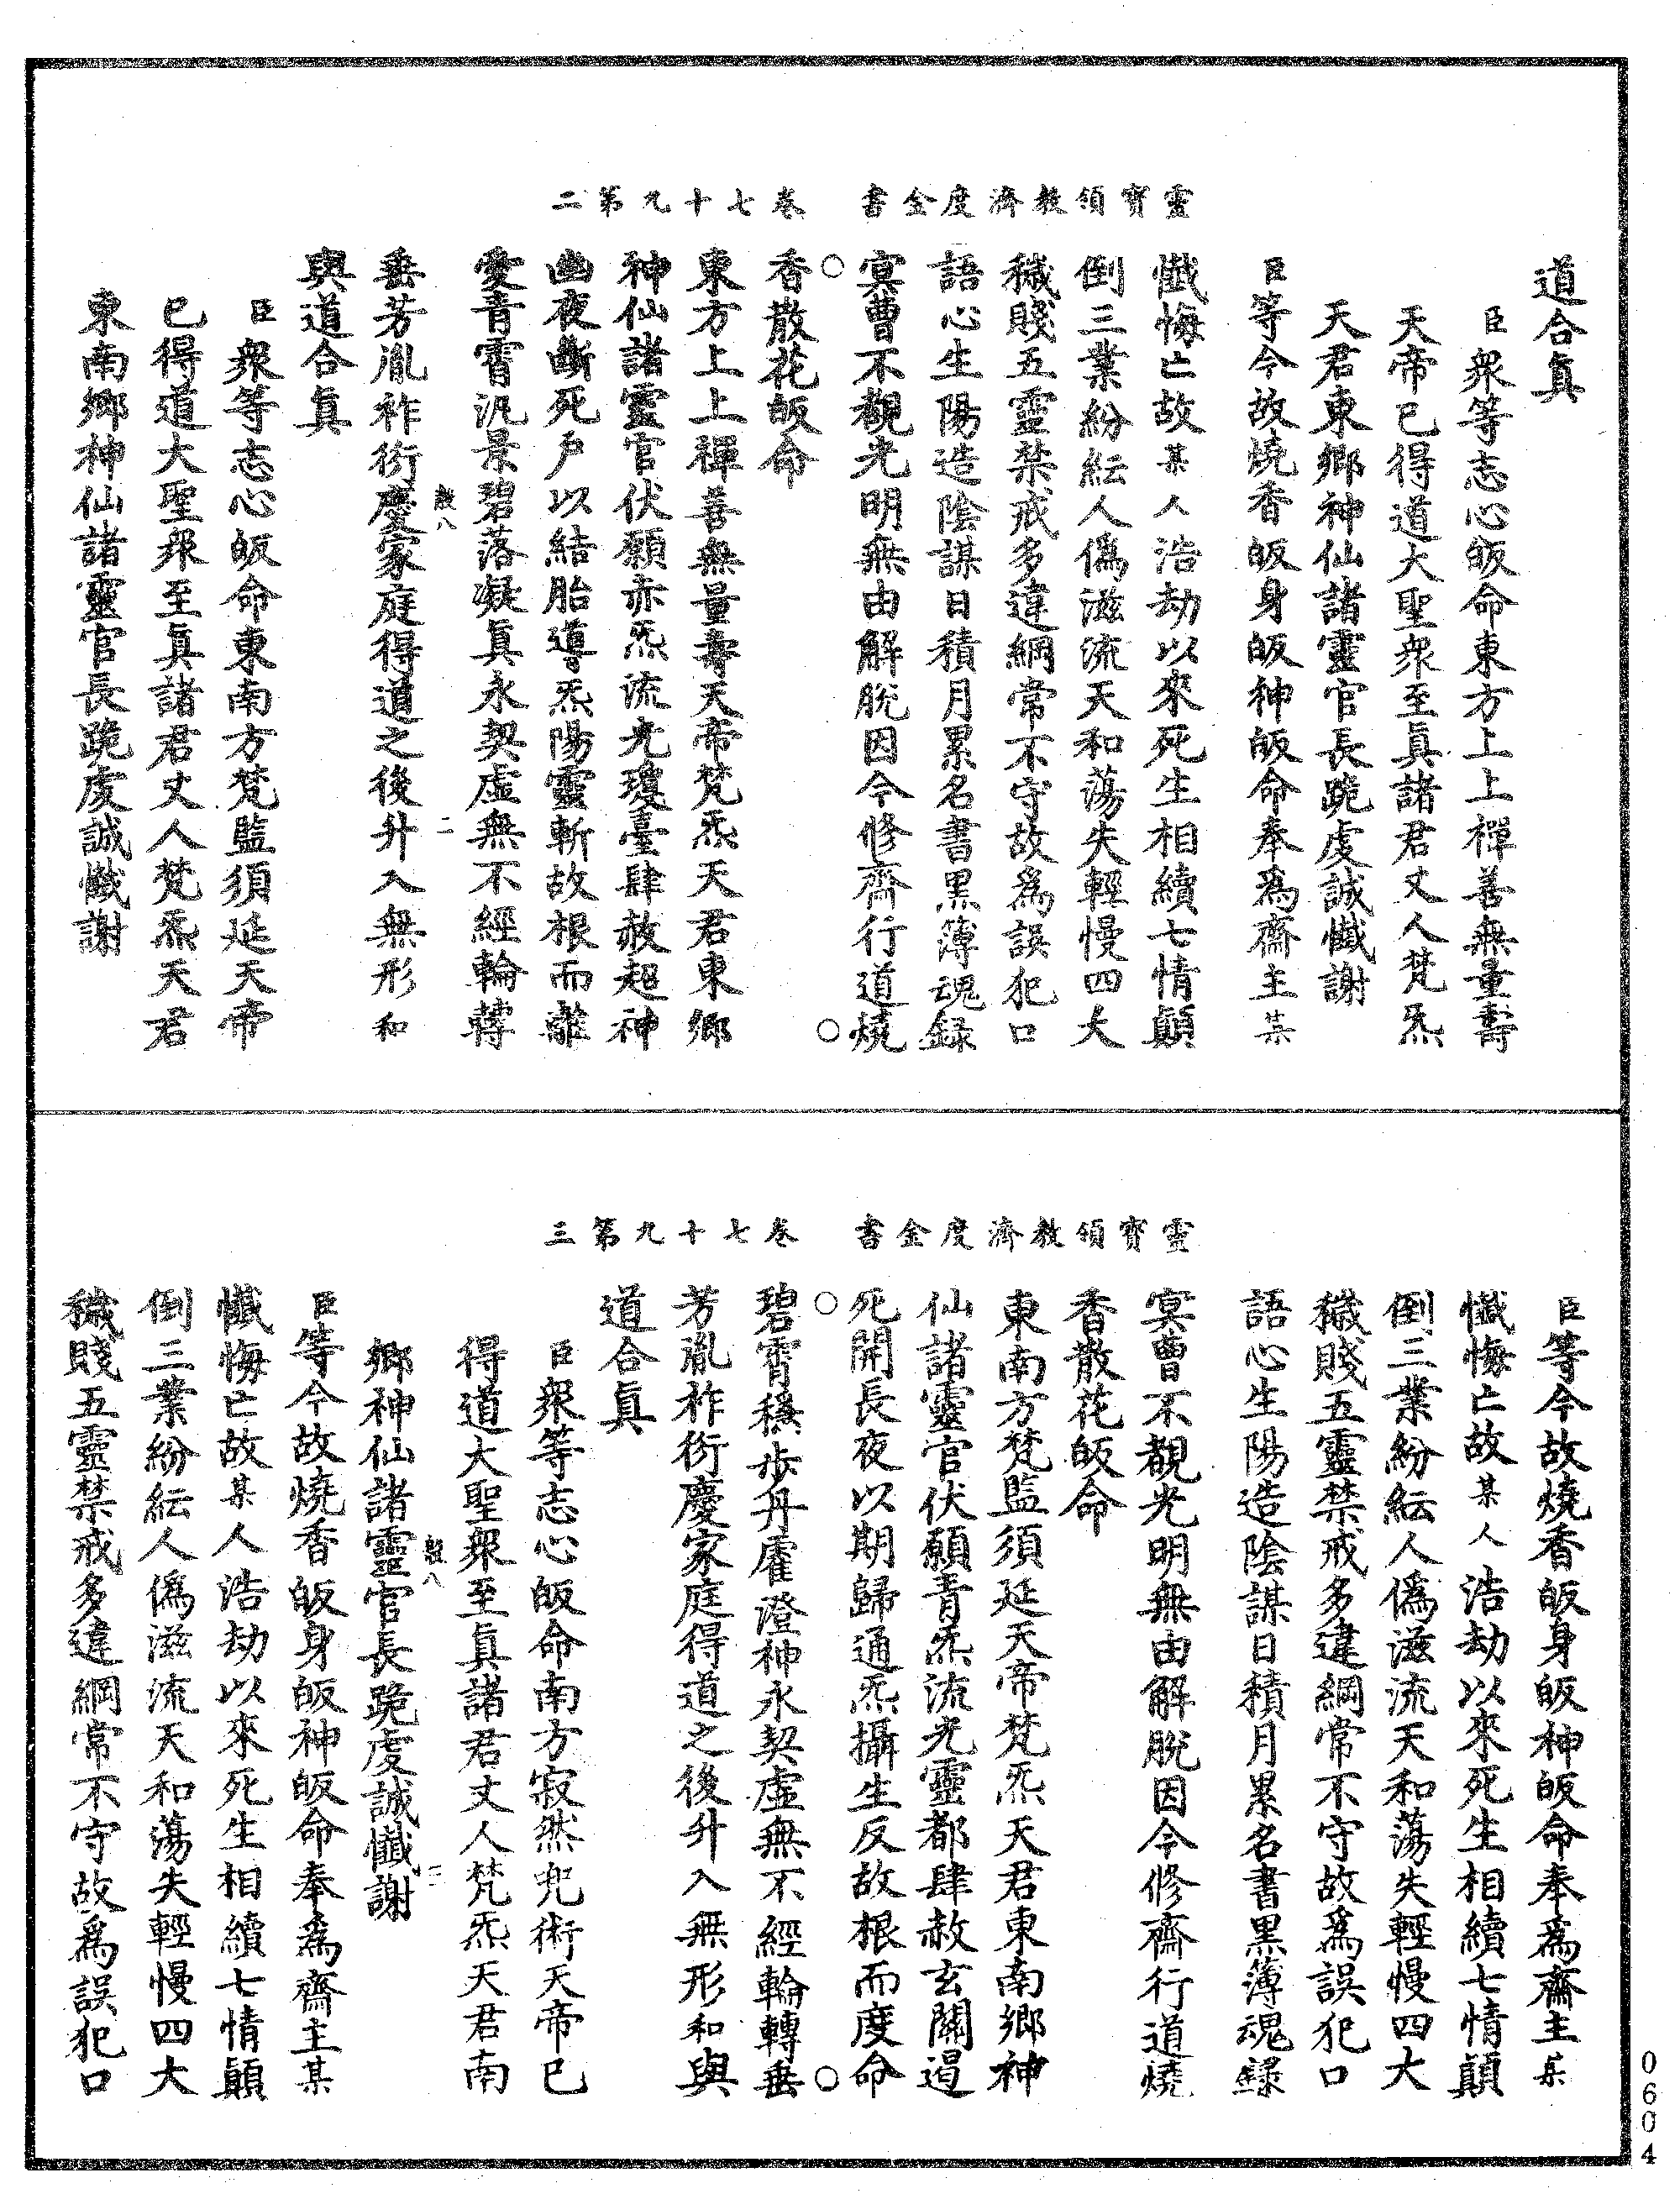 靈寶領教濟度金書　卷七十九第二
道合眞
臣眾等志心皈命東方上上禪善無量壽
天帝已得道大聖眾至眞諸君丈人梵炁
天君東鄉神仙諸靈官長跪虔誠懺謝
臣等今故燒香皈身皈神皈命奉爲齋主某
懺悔亡故某人浩劫以來死生相續七情顚
倒三業紛紜人僞滋流天和蕩失輕慢四大
穢賤五靈禁戒多違綱常不守故爲誤犯口
語心生陽造陰謀日積月累名書黑簿魂錄
冥曹不覩光明無由解脫因今修齋行道燒
香散花皈命
○　○
東方上上禪善無量壽天帝梵炁天君東鄉
神仙諸靈官伏願赤炁流光瓊臺肆赦超神
幽夜斷死戶以結胎導炁陽靈斬故根而離
愛青霄汎景碧落凝眞永契虛無不經輪轉
垂芳胤祚衍慶家庭得道之後升入無形和
與道合眞
臣眾等志心皈命東南方梵監須延天帝
已得道大聖眾至眞諸君丈人梵炁天君
東南鄉神仙諸靈官長跪虔誠懺謝
靈寶領教濟度金書　卷七十九第三
臣等今故燒香皈身皈神皈命奉爲齋主某
懺悔亡故某人浩劫以來死生相續七情顚
倒三業紛紜人僞滋流天和蕩失輕慢四大
穢賤五靈禁戒多違綱常不守故爲誤犯口
語心生陽造陰謀日積月累名書黑簿魂錄
冥曹不覩光明無由解脫因今修齋行道燒
香散花皈命
東南方梵監須延天帝梵炁天君東南鄉神
仙諸靈官伏願青炁流光靈都肆赦玄關遏
死開長夜以期歸通炁攝生反故根而度命
○　○
碧霄穩步丹臒澄神永契虛無不經輪轉垂
芳胤祚衍慶家庭得道之後升入無形和與
道合眞
臣眾等志心皈命南方寂然兜術天帝已
得道大聖眾至眞諸君丈人梵炁天君南
鄉神仙諸靈官長跪虔誠懺謝
臣等今故燒香皈身皈神皈命奉爲齋主某
懺悔亡故某人浩劫以來死生相續七情顚
倒三業紛紜人僞滋流天和蕩失輕慢四大
穢賤五靈禁戒多違綱常不守故爲誤犯口
0604